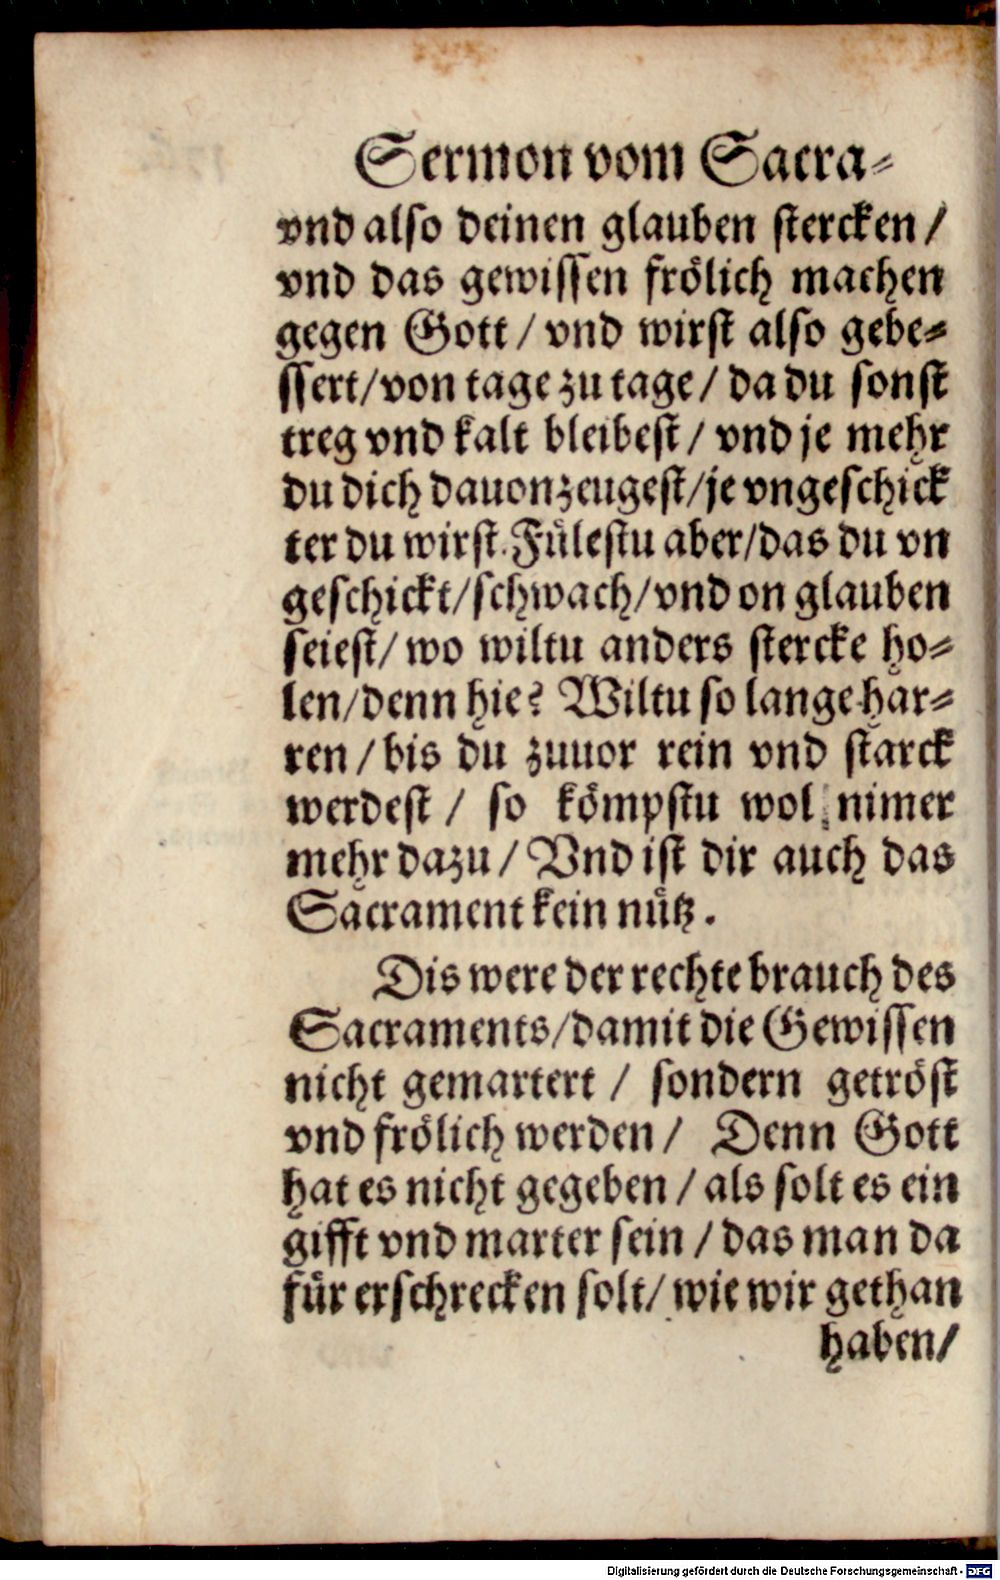 Sermon vom Sacra⸗
vnd also deinen glauben stercken /
vnd das gewissen frölich machen
gegen Gott / vnd wirst also gebe⸗
ssert/von tage zu tage / da du sonst
treg vnd kalt bleibest / vnd je mehr
du dich dauon zeugest/je vngeschick
ter du wirst. Fülestu aber/das du vn
geschickt/schwach/vnd on glauben
seiest/ wo wiltu anders stercke ho⸗
len/denn hie? Wiltu so lange har⸗
ren / bis du zuuor rein vnd starck
werdest / so kömpstu wol nimer
mehr dazu / Vnd ist dir auch das
Sacrament kein nütz.
Dis were der rechte brauch des
Sacraments/damit die Gewissen
nicht gemartert / sondern getröst
vnd frölich werden / Denn Gott
hat es nicht gegeben / als solt es ein
gifft vnd marter sein / das man da
für erschrecken solt/ wie wir gethan
haben/
Digitalisierung gefördert durch die Deutsche Forschungsgemeinschaft - DFG